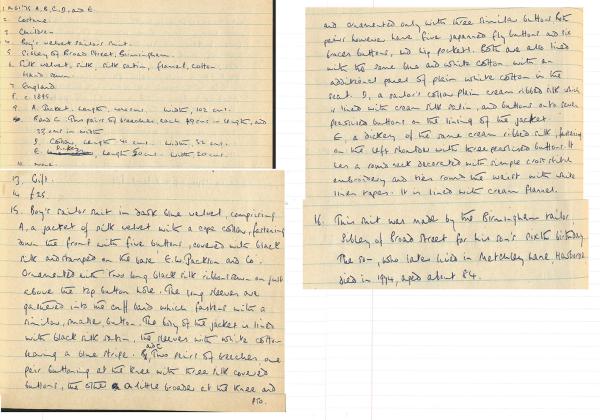 1. M61'75 A, B, C, D, and E.
2. Costume.
3. Children
4. Boy's velvet sailor's suit.
5. Sibley of Broad Street, Birmingham.
6. Silk velvet, silk, silk satin, flannel, cotton.
Hand sewn.
7. England
8. c 1895.
9. A. Jacket. Length, cms. Width, 102 cms.
B and C. Two pairs of breeches, each 49 cms in length, and
33 cms in width
D. Collar, length 41 cms. Width, 32 cms.
E. Dickey, Length 50 cms. Width 20 cms.
none
13. Gift.
14. £25
15. Boy's sailor suit in dark blue velvet, comprising
A, a jacket of silk velvet with a cape collar, fastening
down the front with five buttons, covered with black
silk and stamped on the base E.W. Packson and Co.
Ornamented with two long black silk ribbons sewn on just
above the top button hole. The long sleeves are
gathered into the cuff band which fastens with a
similar, smaller button. The body of the jacket is lined
with black silk satin, the sleeves with white cotton
having a blue stripe. B, and C Two pairs of breeches one
pair buttoning at the knee with three silk covered
buttons, the other a little broader at the knee and
PTO.
and ornamented only with three similar buttons Both
pairs however have five japanned fly buttons and six
braces buttons, no hip pocket. Both are also lined
with the same blue and white cotton with an
additional panel of plain white cotton in the
seat. D, a sailor's collar plain cream ribbed silk which
is lined with cream silk satin, and buttons onto seven
pearlised buttons on the lining of the jacket
E, a dickey of the same cream ribbed silk, fastening
on the left shoulder with three pearlised buttons. It
has a round neck decorated with simple cross stitch
embroidery and ties round the waist with white
linen tapes. It is lined with cream flannel.
16. This suit was made by the Birmingham tailor
Sibley of Broad Street for his son's sixth birthday
The son, who later lived in Metchley Lane, Harborne
died in 1974, aged about 84.